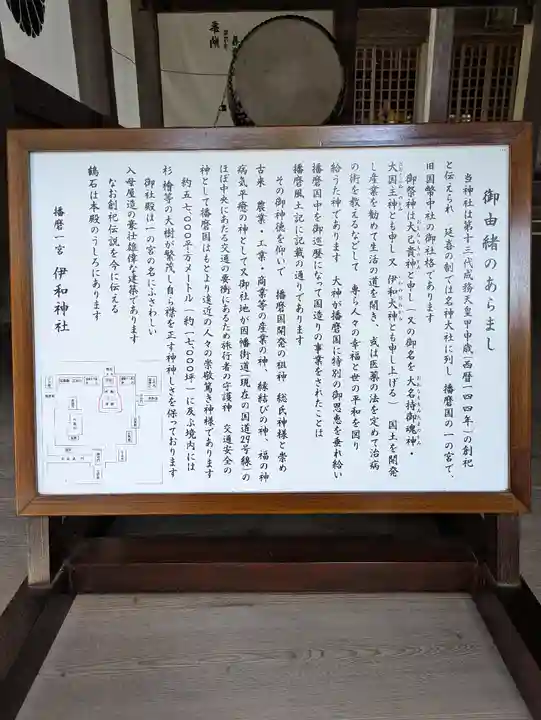 御由緒のあらまし
当神社は第十三代成務天皇甲申歳(西暦一四四年)の創祀
と伝えられ 延喜の制では名神大社に列し 播磨国の一の宮で、
旧国幣中社の御社格であります
御祭神は大己貴神と申し(又の御名を 大名持御魂神・
大国主神とも申し又 伊和大神とも申し上げる) 国土を開発
し産業を勧めて生活の道を開き、或は医薬の法を定めて治病
の術を教えるなどして 専ら人々の幸福と世の平和を図り
給うた神であります 大神が播磨国に特別の御恩恵を垂れ給い
播磨国中を御巡歴になって国造りの事業をされたことは
播磨風土記に記載の通りであります
その御神徳を仰いで 播磨国開発の祖神 総氏神様と崇め
古来 農業・工業・商業等の産業の神、縁結びの神、福の神
病気平癒の神として又御社地が因幡街道(現在の国道29号線)の
ほぼ中央にあたる交通の要衝にあるため旅行者の守護神 交通安全の
神として播磨国はもとより遠近の人々の崇敬篤き神様であります
約五七〇〇〇平方メートル(約一七〇〇〇坪)に及ぶ境内には
杉 檜等の大樹が繁茂し自ら襟を正す神神しさを保っております
御社殿は一の宮の名にふさわしい
入母屋造の豪壮雄偉な建築であります
なお創祀伝説を今に伝える
鶴石は本殿のうしろにあります
播磨一宮 伊和神社